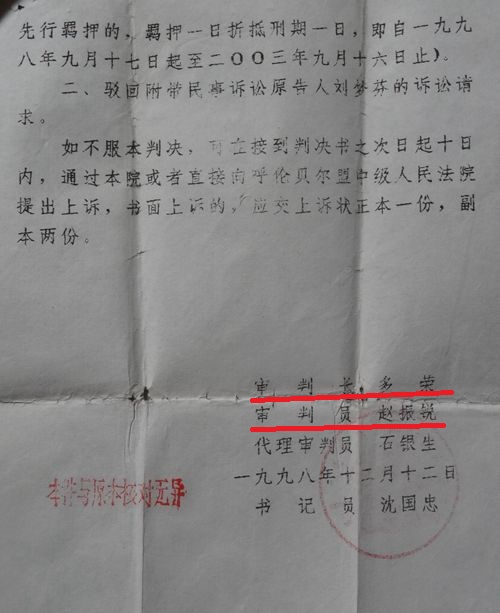 先行羁押的，羁押一日折抵刑期一日，即自一九九
八年九月十七日起至二〇〇三年九月十六日止）。
二、驳回附带民事诉讼原告人刘梦芬的诉讼请
求。
如不服本判决，可在接到判决书之次日起十日
内，通过本院或者直接向呼伦贝尔盟中级人民法院
提出上诉，书面上诉的，应交上诉状正本一份，副
本两份。
审判长 多荣
审判员 赵振锐
代理审判员 石银生
一九九八年十二月十二日
书记员 沈国忠
本件与原本核对无异